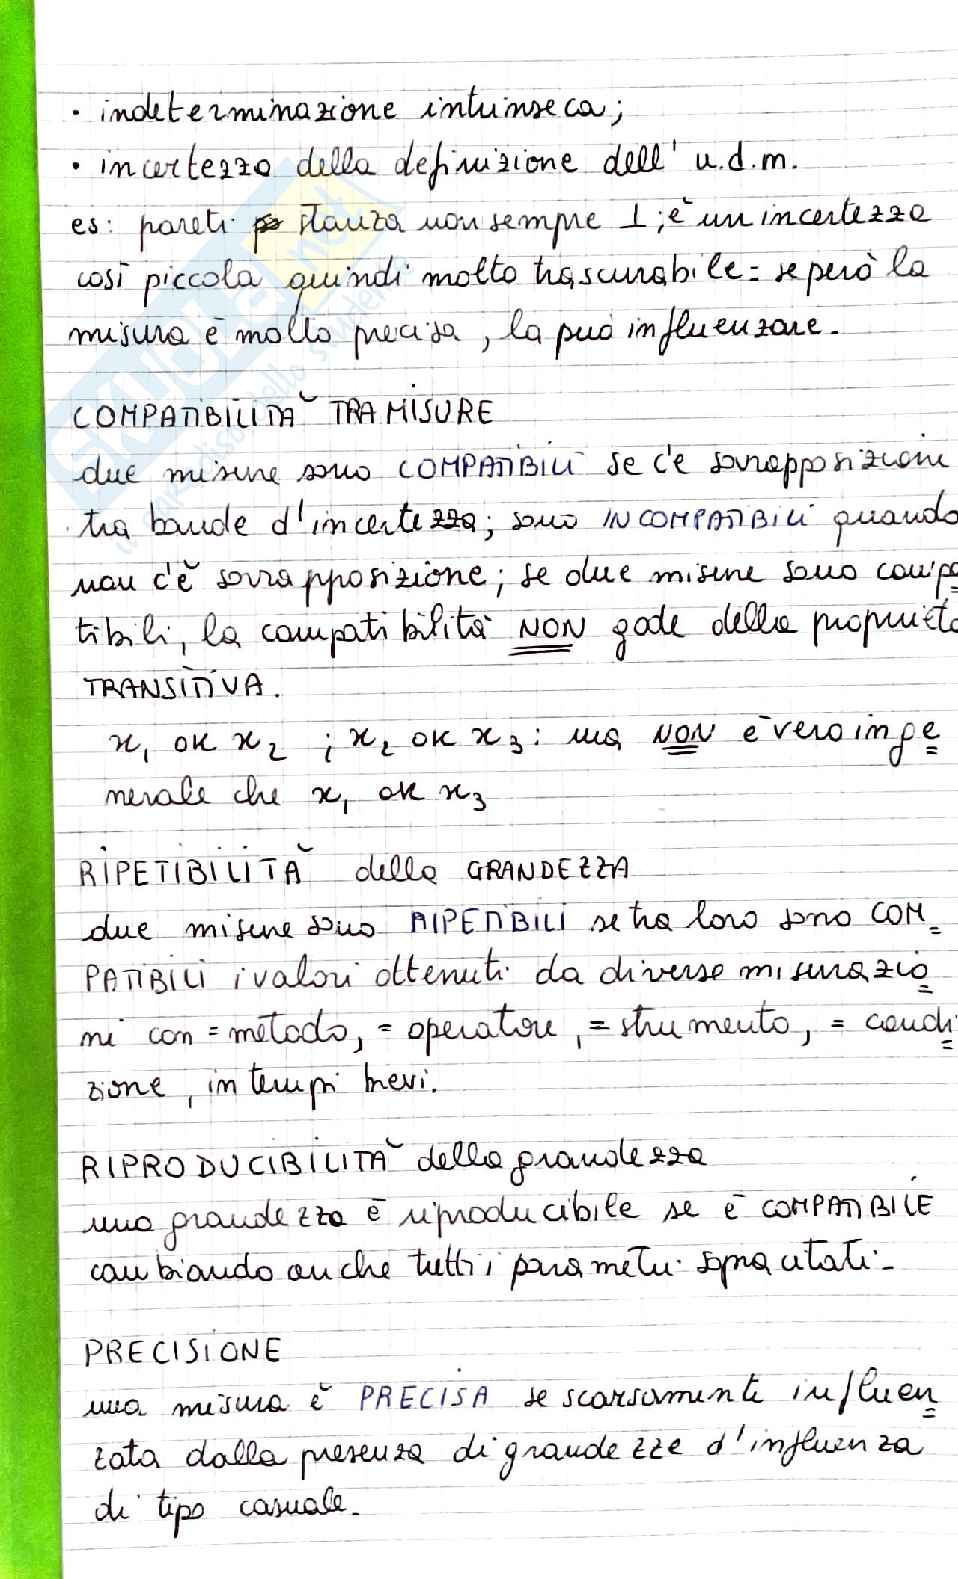 · indeterminazione intrinseca;
· incertezza della definizione dell' u.d.m.
es: pareti stanza non sempre ⊥; è un incertezza
così piccola quindi molto trascurabile = se però la
misura è molto precisa, la può influenzare.
COMPATIBILITÀ TRA MISURE
due misure sono COMPATIBILI se c'è sovrapposizioni
tra bande d'incertezza; sono INCOMPATIBILI quando
non c'è sovrapposizione; se due misure sono compa
tibili, la compatibilità NON gode della proprietà
TRANSITIVA.
x₁ ok x₂ ; x₂ ok x₃ : ma NON è vero in ge
nerale che x₁ ok x₃
RIPETIBILITÀ della GRANDEZZA
due misure sono RIPETIBILI se tra loro sono COM
PATIBILI i valori ottenuti da diverse misurazio
ni con = metodo, = operatore, = strumento, = condi
zione, in tempi brevi.
RIPRODUCIBILITÀ della grandezza
una grandezza è riproducibile se è COMPATIBILE
cambiando anche tutti i parametri sopra citati.
PRECISIONE
una misura è PRECISA se scarsamente influen
zata dalla presenza di grandezze d'influenza
di tipo casuale.